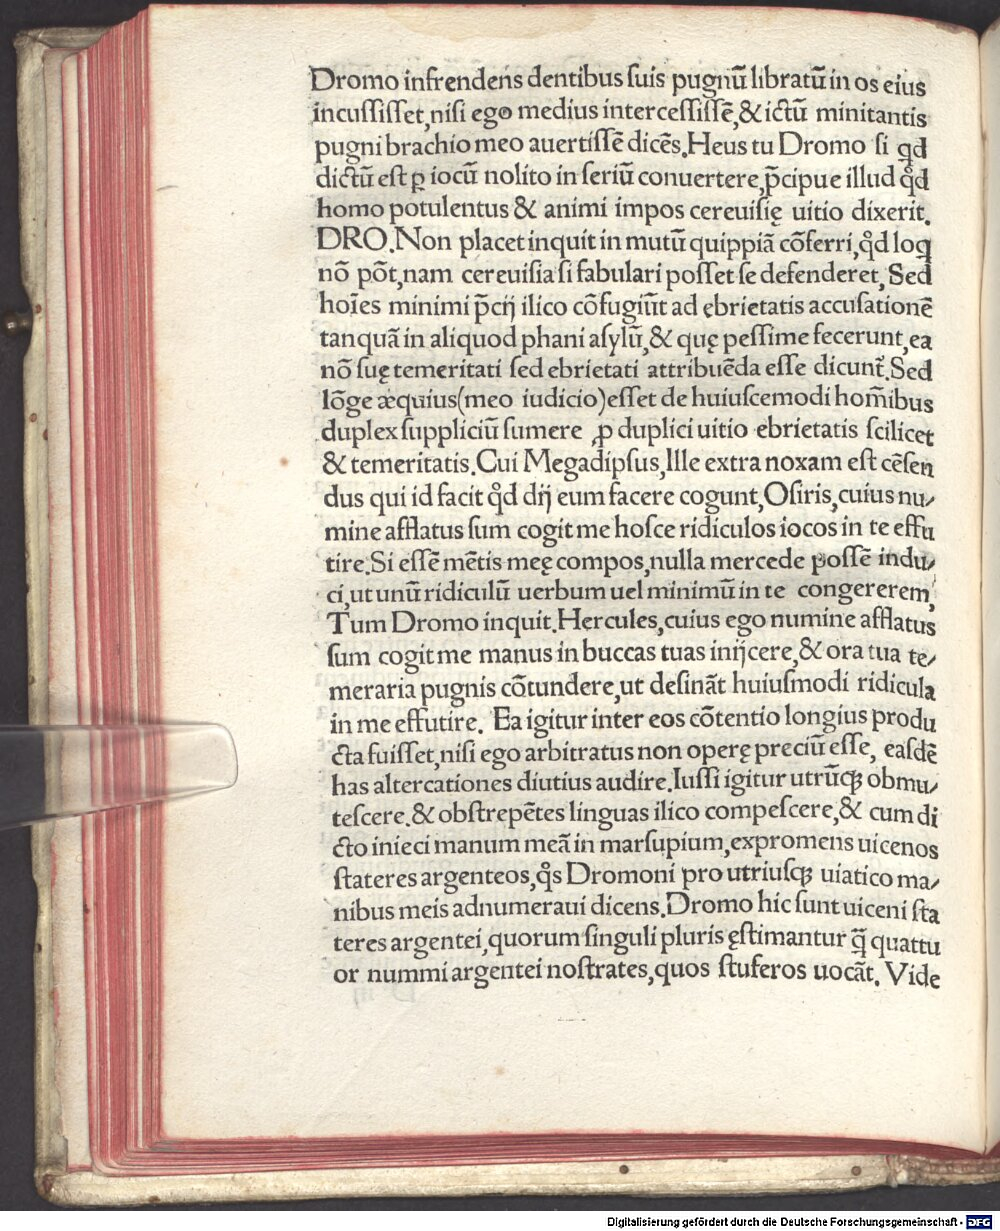 Dromo infrendens dentibus ſuis pugnū libratū in os eius
incuſſiſſet,niſi ego medius interceſſiſſē,& ictū minitantis
pugni brachio meo auertiſſē dicēs.Heus tu Dromo ſi qd̄
dictū est ꝑ iocū nolito in ſeriū conuertere,p̄cipue illud qd̊
homo potulentus & animi impos cereuiſię uitio dixerit.
DRO.Non placet inquit in mutū quippiā cōferri,qd̊ loq
nō pōt,nam cereuiſia ſi fabulari poſſet ſe defenderet,Sed
hoīes minimi p̄cij ilico cōfugiūt ad ebrietatis accuſationē
tanquā in aliquod phani aſylū,& quę peſſime fecerunt,ea
nō ſuę temeritati ſed ebrietati attribuēda eſſe dicunt̄.Sed
lōge æquius(meo iudicio)eſſet de huiuſcemodi hom̄ibus
duplex ſuppliciū ſumere ꝓ duplici uitio ebrietatis ſcilicet
& temeritatis.Cui Megadipſus,Ille extra noxam eſt cēſen
dus qui id facit qd̊ dij eum facere cogunt,Oſiris,cuius nu⸗
mine afflatus ſum cogit me hoſce ridiculos iocos in te effu
tire.Si eſſē mētis meę compos,nulla mercede poſſē indu⸗
ci,ut unū ridiculū uerbum uel minimū in te congererem,
Tum Dromo inquit.Hercules,cuius ego numine afflatus
ſum cogit me manus in buccas tuas inijcere,& ora tua te⸗
meraria pugnis cōtundere,ut deſināt huiuſmodi ridicula
in me effutire. Ea igitur inter eos cōtentio longius produ
cta fuiſſet,niſi ego arbitratus non operę preciū eſſe, eaſdē
has altercationes diutius audire.Iuſſi igitur utrūcꝫ obmu⸗
teſcere.& obſtrepētes linguas ilico compeſcere,& cum di
cto inieci manum meā in marſupium,expromens uicenos
ſtateres argenteos,qͦs Dromoni pro utriuſcꝫ uiatico ma⸗
nibus meis adnumeraui dicens.Dromo hic ſunt uiceni ſta
teres argentei,quorum ſinguli pluris ęſtimantur q̄ꝫ quattu
or nummi argentei noſtrates,quos ſtuferos uocāt. Vide
Digitalisierung gefördert durch die Deutsche Forschungsgemeinschaft - DFG